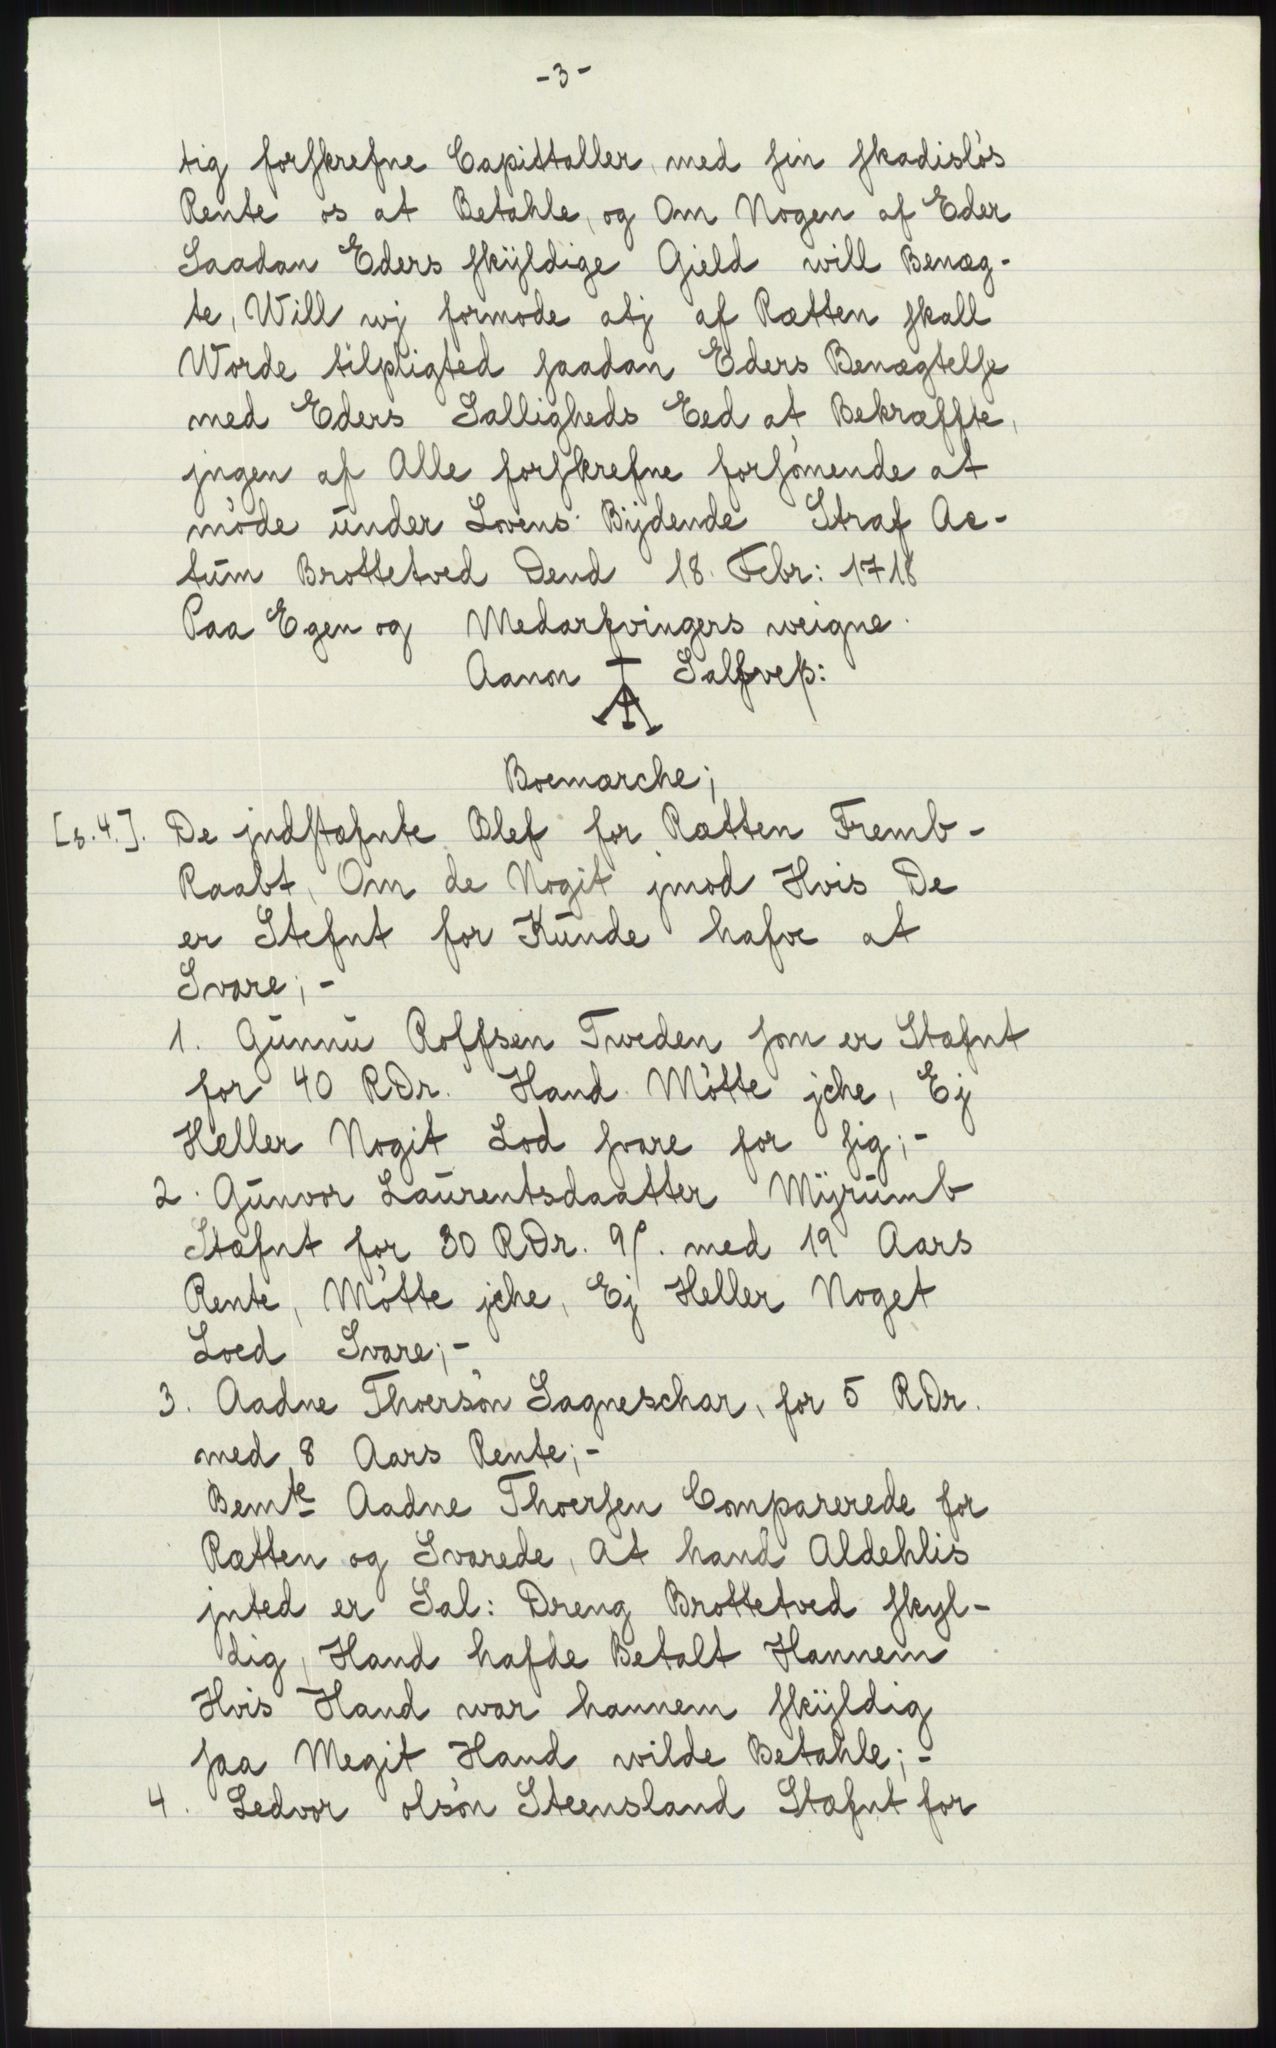 -3-
tig forskrefne Capittaller, med sin skadisløs
Rente os at Betahle, og Om Nogen af Eder
Saadan Eders skÿldige Gield will Benæg-
te, Will wj formode atj af Rætten skall
Worde tilpligted saadan Eders Benægtelse
med Eders Salligheds Eed at Bekræffte,
jngen af Alle forskrefne forsømende at
møde under Lovens Bÿdende Straf Ac-
tum Brottetved Dend 18. Febr: 1718
Paa Egen og Medarfvingers weigne.
Aanon Salfveß:
Boemærche;
[s. 4.]. De jndstæfnte Blef for Rætten Fremb-
Raabt, Om de Nogit jmod Hvis De
er Stefnt for Kunde hafve at
Svare; -
1. Gunnu Roffsen Tweden som er Stæfnt
for 40 RDr. Hand Møtte jche, Ej
Heller Nogit Lod svare for sig; -
2. Gunvor Laurentsdaatter Mÿrumb
Stæfnt for 30 RDr. 9ß. med 19 Aars
Rente, Møtte jche, Ej Heller Noget
Loed Svare; -
3. Aadne Thoersøn Lagneschar, for 5 RDr.
med 8 Aars Rente; -
Bemte Aadne Thoersen Comparerede for
Rætten og Svarede, At hand Aldehlis
jnted er Sal: Dreng Brottetved skyl-
dig, Hand hafde Betalt Hannem
Hvis Hand war hannem skÿldig
saa Megit Hand wilde Betahle; -
4. Ledvor olsøn Steensland Stæfnt for